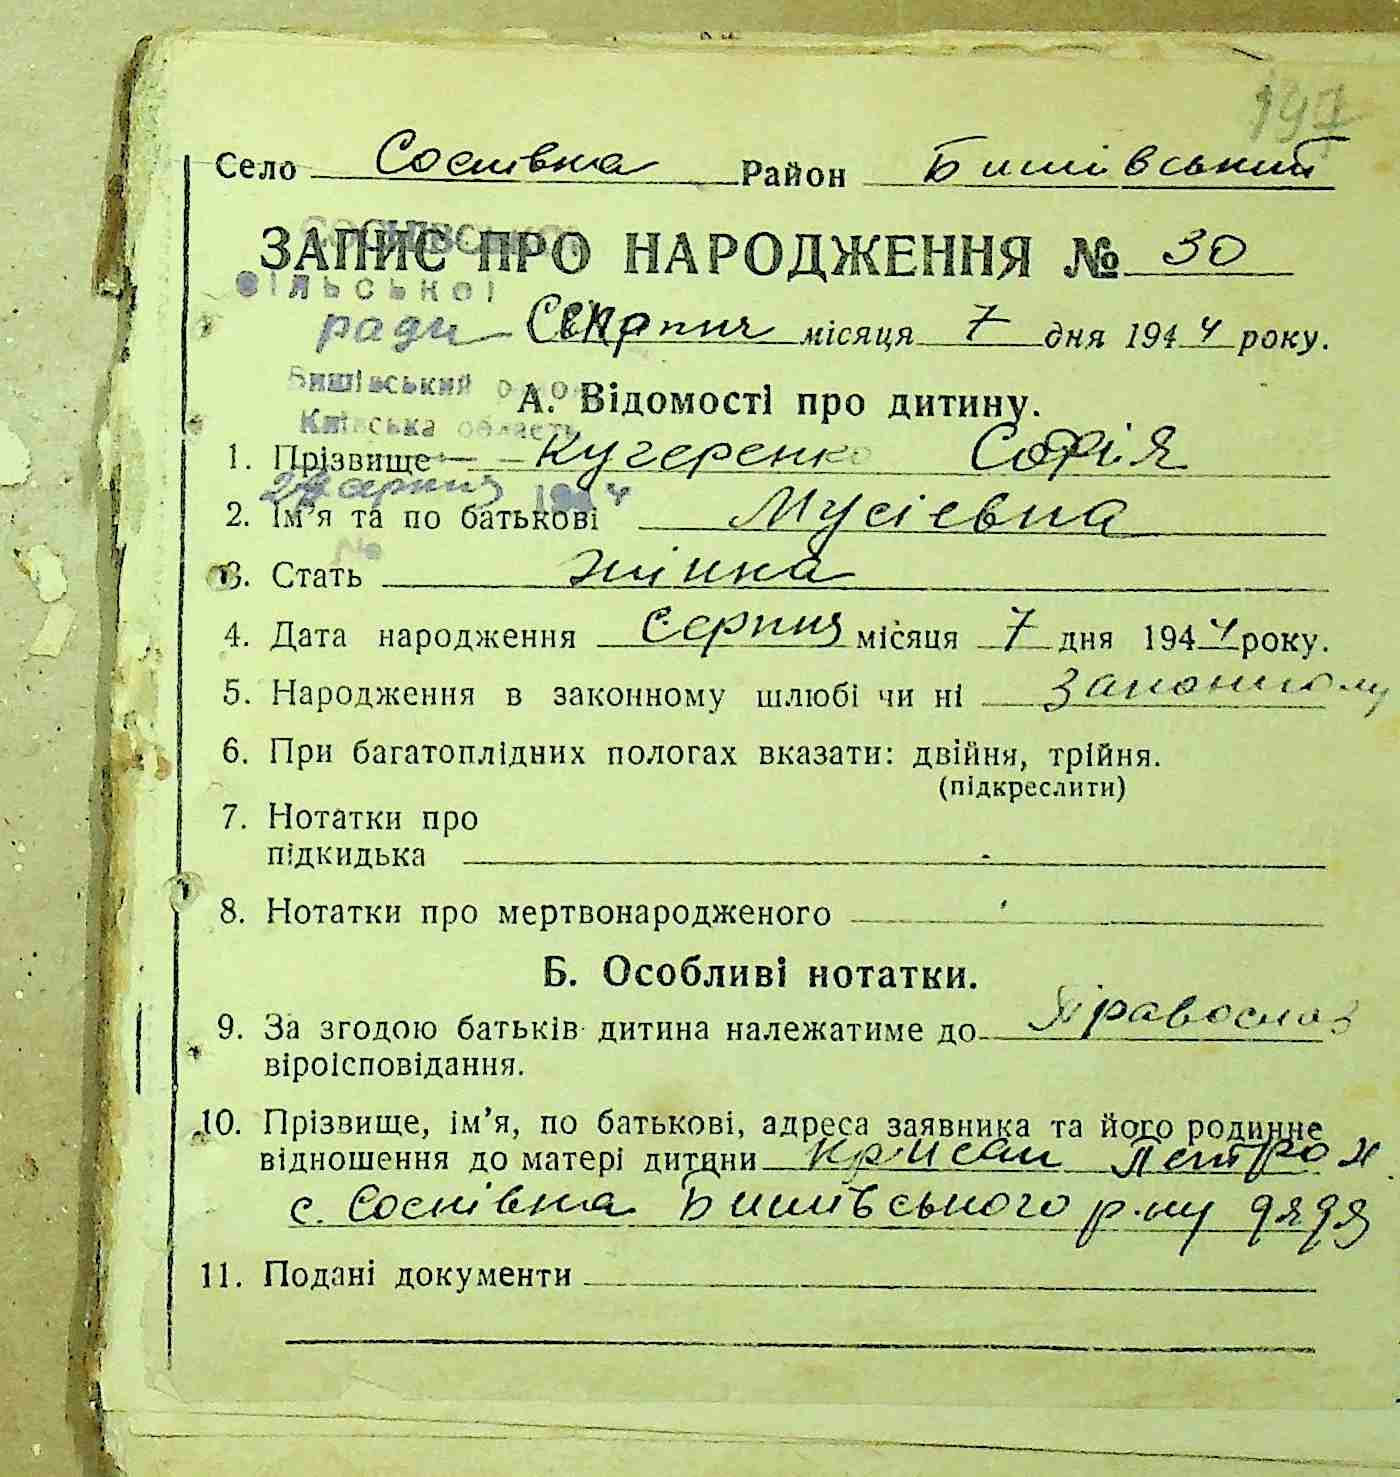 197
Село Соснівка Район Бишівський
СОСНІВСЬКОЇ
ЗАПИС ПРО НАРОДЖЕННЯ № 30
сільської
ради Серпня місяця 7 дня 1944 року.
Бишівський район
А. Відомості про дитину.
Київська область
1. Прізвище Кучеренко Софія
серпня 1944
2. Ім'я та по батькові Мусієвна
№
3. Стать жінка
4. Дата народження Серпня місяця 7 дня 1944 року.
5. Народження в законному шлюбі чи ні законному
6. При багатоплідних пологах вказати: двійня, трійня.
(підкреслити)
7. Нотатки про
підкидька
8. Нотатки про мертвонародженого
Б. Особливі нотатки.
9. За згодою батьків дитина належатиме до Православ
віроісповідання.
10. Прізвище, ім'я, по батькові, адреса заявника та його родинне
відношення до матері дитини Крисан Петро
с. Соснівка Бишівського р-ну дядя
11. Подані документи